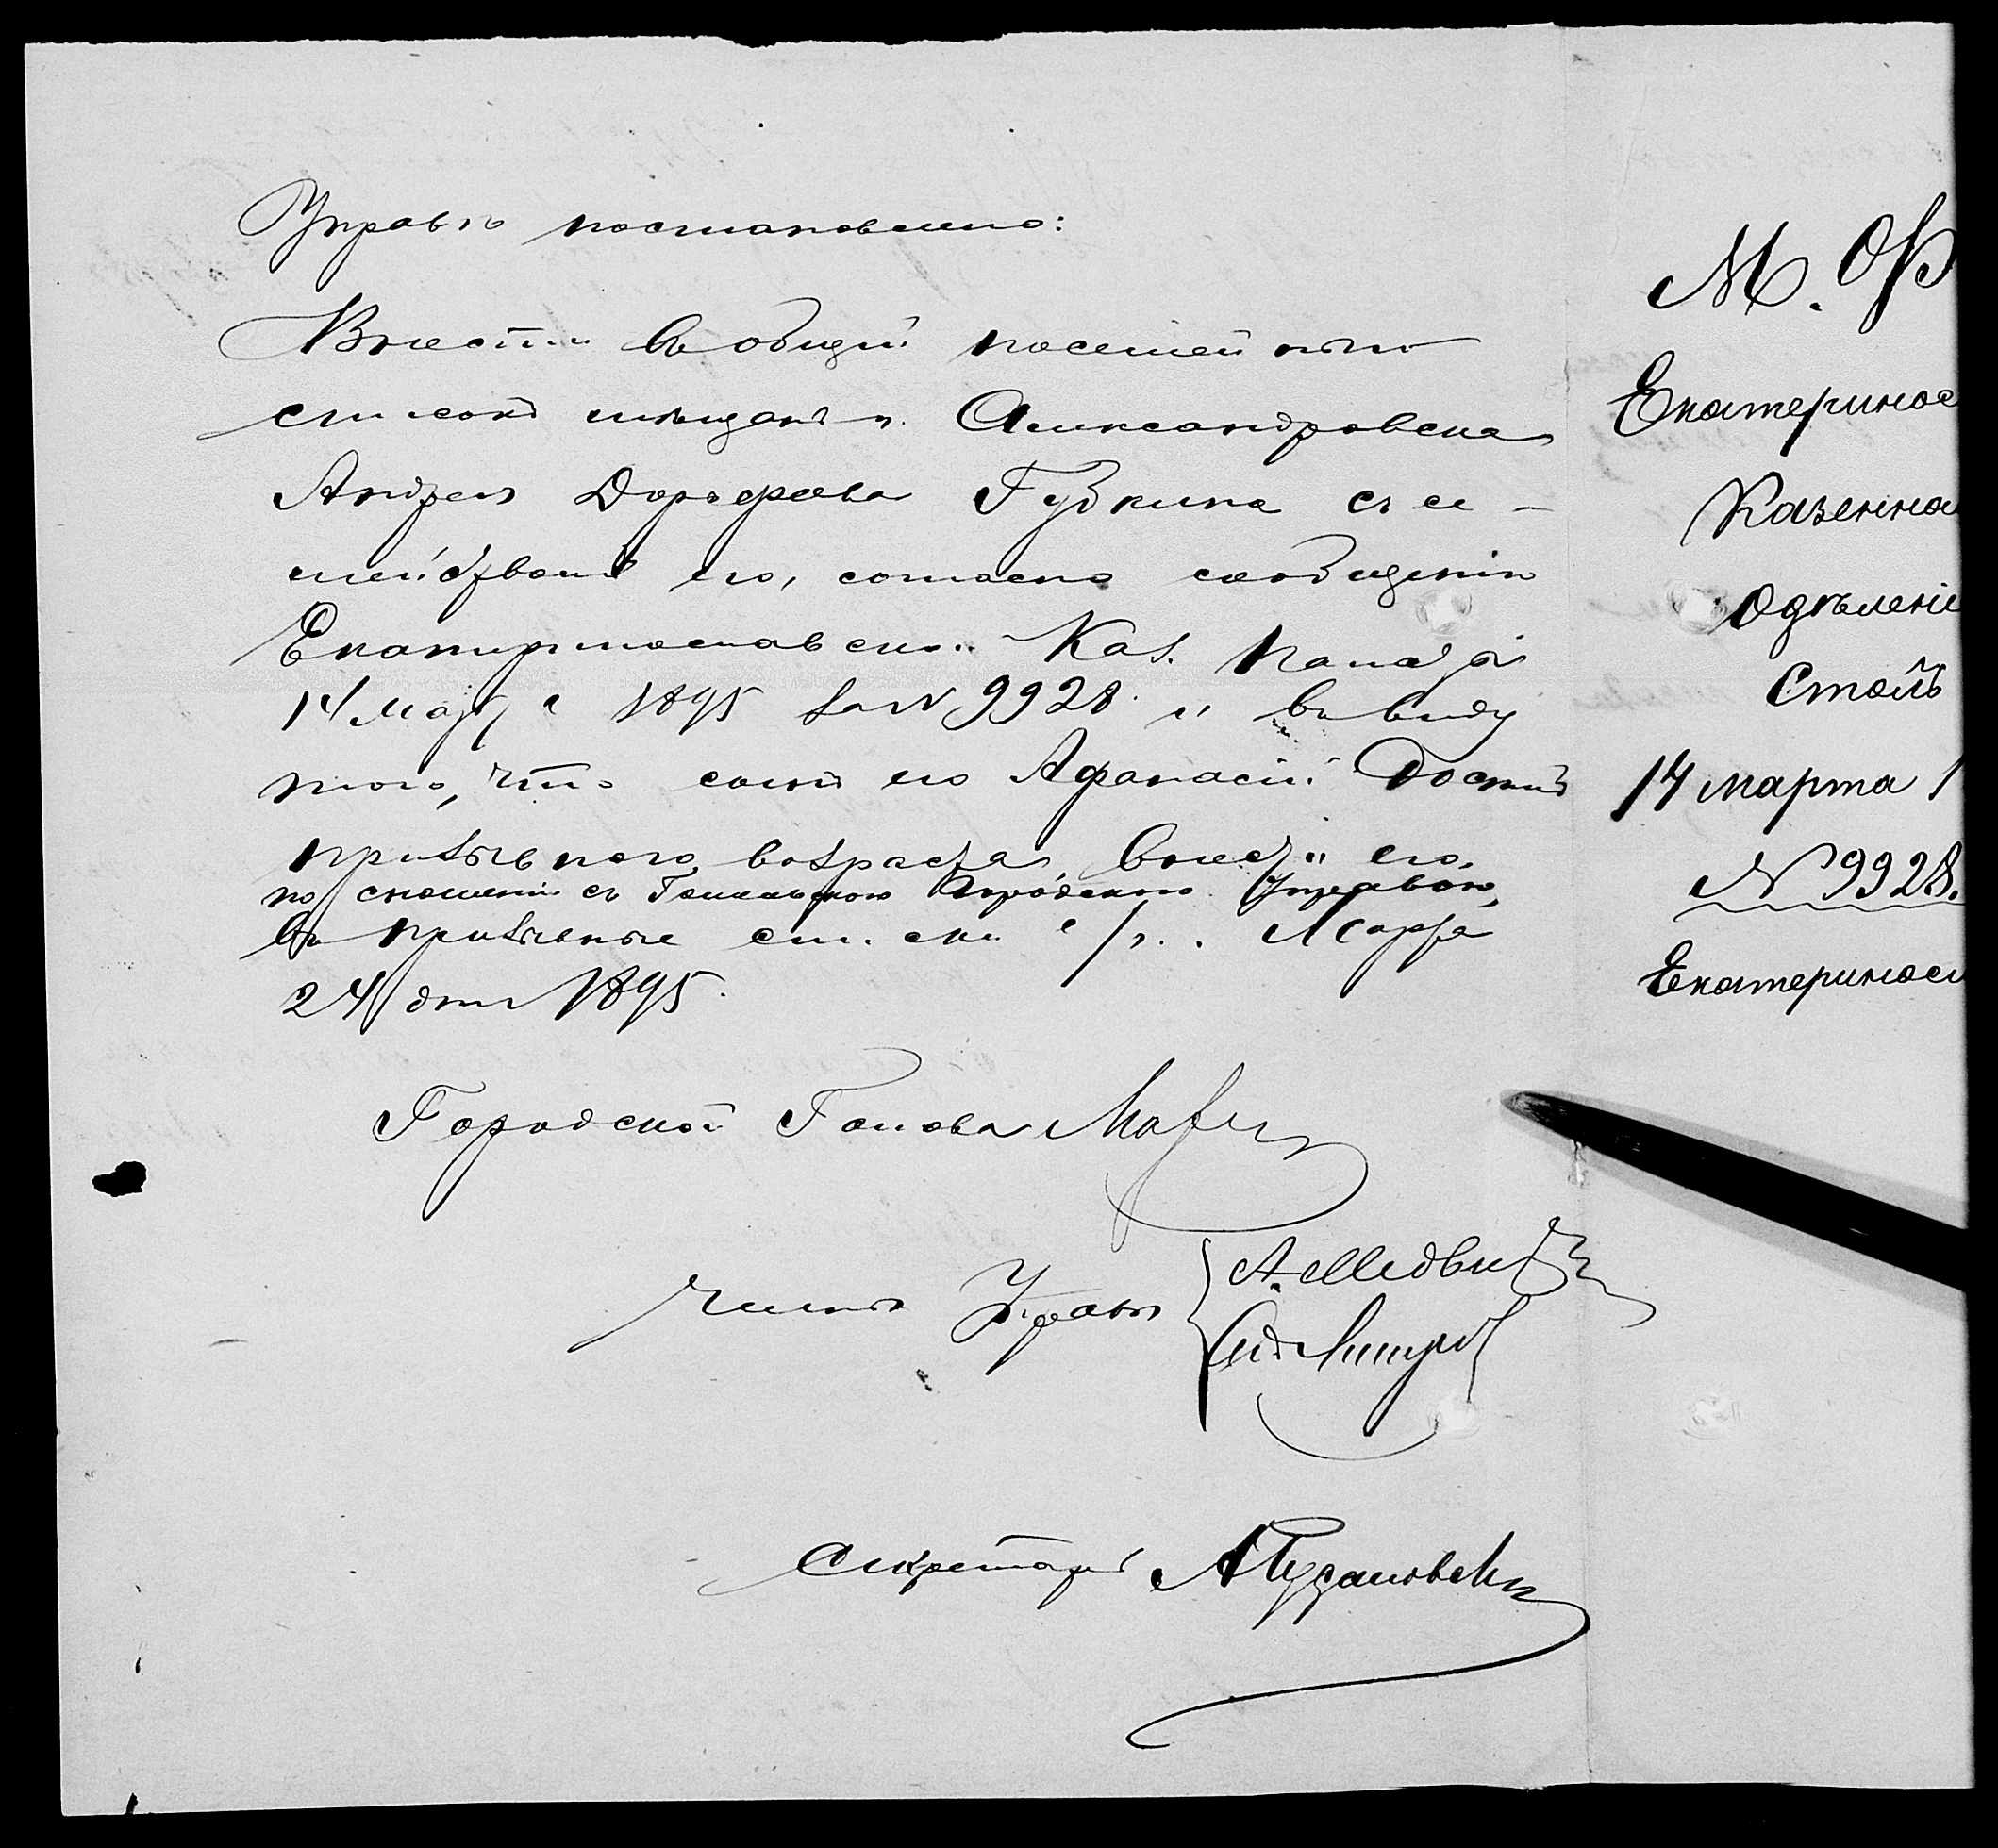 Управѣ постановлено:
Внести въ общій посемейный
списокъ мѣщанъ г. Александровска
Андрея Дорофеева Губкина съ се-
мействомъ его, согласно сообщенію
Екатеринославской Каз. Палаты
14 Марта 1895 за № 9928 и въ виду
того, что сынъ его Афанасій достигъ
призывного возраста, внести его,
по сношеніи съ Городскою Управою,
въ призывные списки с/г. Марта
24 дня 1895.
Городской Голова
Члены Управы
А. Медвѣ
Секретарь
М. Ф
Екатеринос
Казенна
Отдѣленіе
Столъ
14 марта 1
№ 9928.
Екатеринос